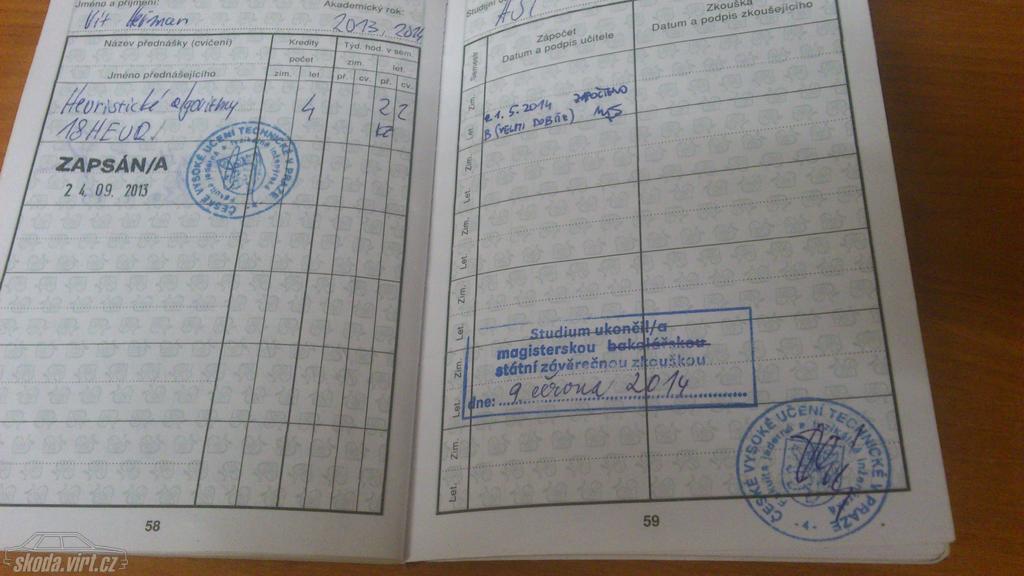 Jméno a příjmení:
Vít Herman
Akademický rok:
2013, 2014
Název přednášky (cvičení)
Jméno přednášejícího
Kredity
počet
zim. let
Týd. hod. v sem.
zim. let.
př. cv. př. cv.
Heuristické algoritmy 4 2 2
kz
18HEUR.
ZAPSÁN/A
24.09. 2013
ČESKÉ VYSOKÉ UČENÍ TECHNICKÉ V PRAZE
58
Studijní
Semestr
Zápočet
Datum a podpis učitele
Zkouška
Datum a podpis zkoušejícího
Zim.
Let.
Zim.
Let.
Zim.
Let.
Zim.
Let.
Zim.
Let.
Zim.
Let.
21.5.2014 ZAPOČTENO
B (VELMI DOBŘE)
Studium ukončil/a
magisterskou bakalářskou
státní závěrečnou zkouškou
dne: 9 června 2014
ČESKÉ VYSOKÉ UČENÍ TECHNICKÉ V PRAZE
- 4 -
59
skoda.virt.cz